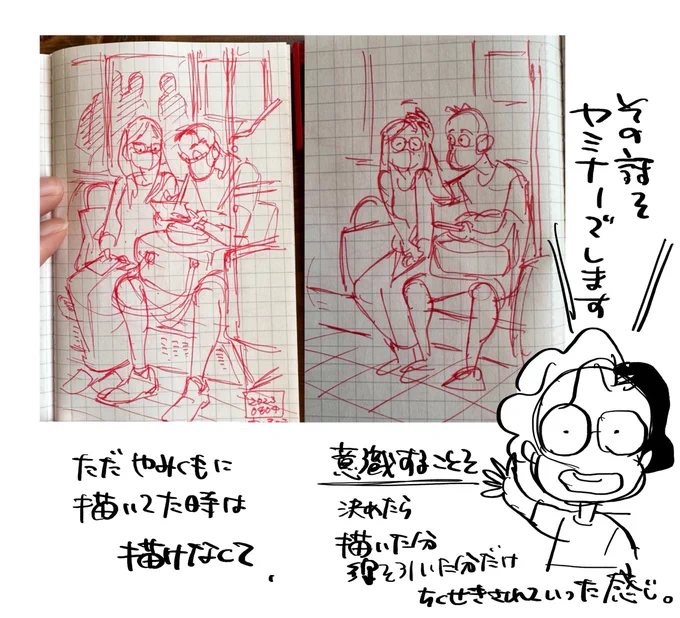 その話を
セミナーでします
2023
0804
ただやみくもに
描いてた時は
描けなくて、
意識することを
決めたら
描いた分
線を引いた分だけ
ちくせきされていった感じ。